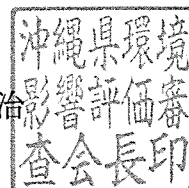 沖縄県環境
影響評価審
査会長印
治